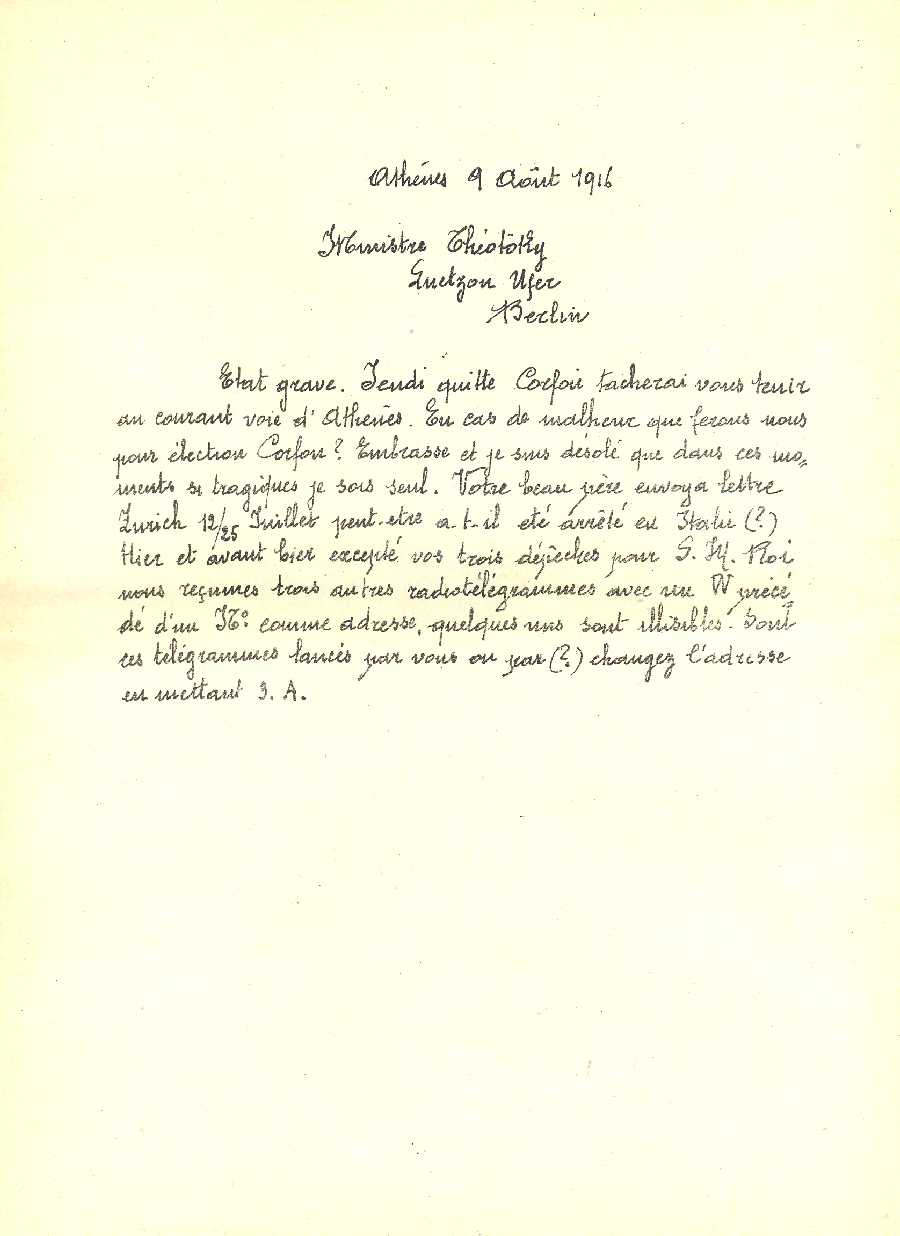 Athénes 9 Aôut 1916
Ministre Théotoky
Luetzon Ufer
Berlin
Etat grave. Jeudi quitte Corfou tacherai vous tenir
au courant voie d'Athenês. En cas de malheur que ferons nous
pour élection Corfou? Embrasse et je suis désolé que dans ces mo-
ments si tragiques je sois seul. Votre beau père envoya lettre
Zurich 12/25 Juillet peut-etre a-t-il eté arrêté en Italie (?)
Hier et avant hier excepté vos trois dépêches pour S. M. Roi
nous reçumes trois autres radiotélégrammes avec un W précé-
dé d'un No. comme adresse, quelques uns sont illisibles. Sont
ces telégrammes lancés par vous ou par (?) changez l'adresse
en mettant J. A.